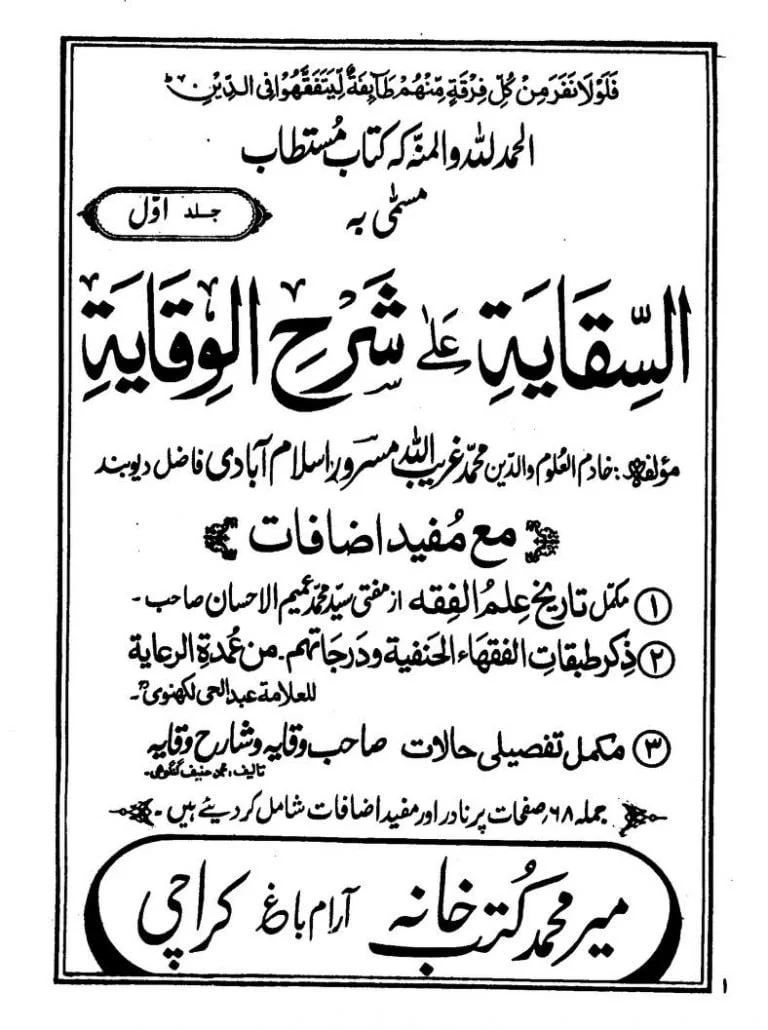 فَلَوْلَا نَفَرَ مِنْ كُلِّ فِرْقَةٍ مِّنْهُمْ طَآئِفَةٌ لِّيَتَفَقَّهُوْا فِي الدِّيْنِ ط
الحمد للہ والمنّہ کہ کتاب مُستطاب
مسمّٰی بہ
جلد اوّل
السِّقَايَةِ عَلٰى شَرْحِ الْوِقَايَةِ
مؤلفہ: خادم العلوم والدّین محمّد غریب اللہ مسرور اسلام آبادی فاضل دیوبند
مع مُفید اضافات
۱ مکمّل تاریخ عِلمُ الفِقه از مفتی سیّد محمّد عمیم الاحسان صاحب ۔
۲ ذکر طبقاتِ الفقهاء الحنفية ودَرجاتهم ۔ من عُمدة الرعاية
للعلامة عبد الحی لکھنویؒ ۔
۳ مکمل تفصیلی حالات صاحب وقایہ و شارح وقایہ
تالیف: محمد حنیف گنگوھی ۔
جملہ ۶۸؍ صفحات پر نادر اور مفید اضافات شامل کر دیئے ہیں ۔
میر محمّد کُتب خانہ آرام باغ کراچی
۱